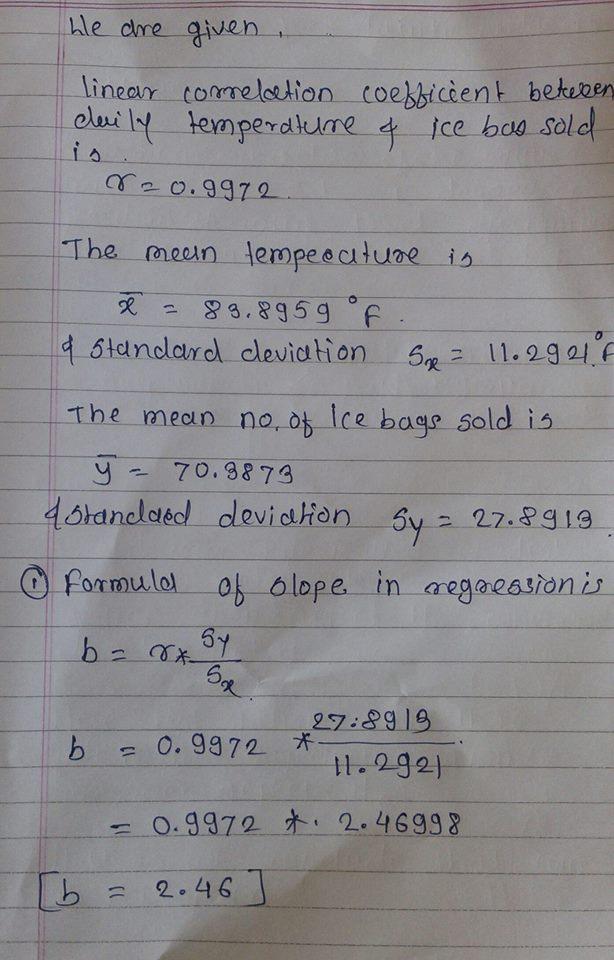 We are given,
linear correlation coefficient between
daily temperature & ice bag sold
is.
r = 0.9972.
The mean temperature is
x̄ = 83.8959 °F.
& Standard deviation Sx = 11.2921 °F
The mean no. of Ice bags sold is
ȳ = 70.3873
& Standard deviation Sy = 27.8913.
① Formula of slope in regression is
b = r * Sy / Sx.
b = 0.9972 * 27.8913 / 11.2921.
= 0.9972 * 2.46998
[b = 2.46]